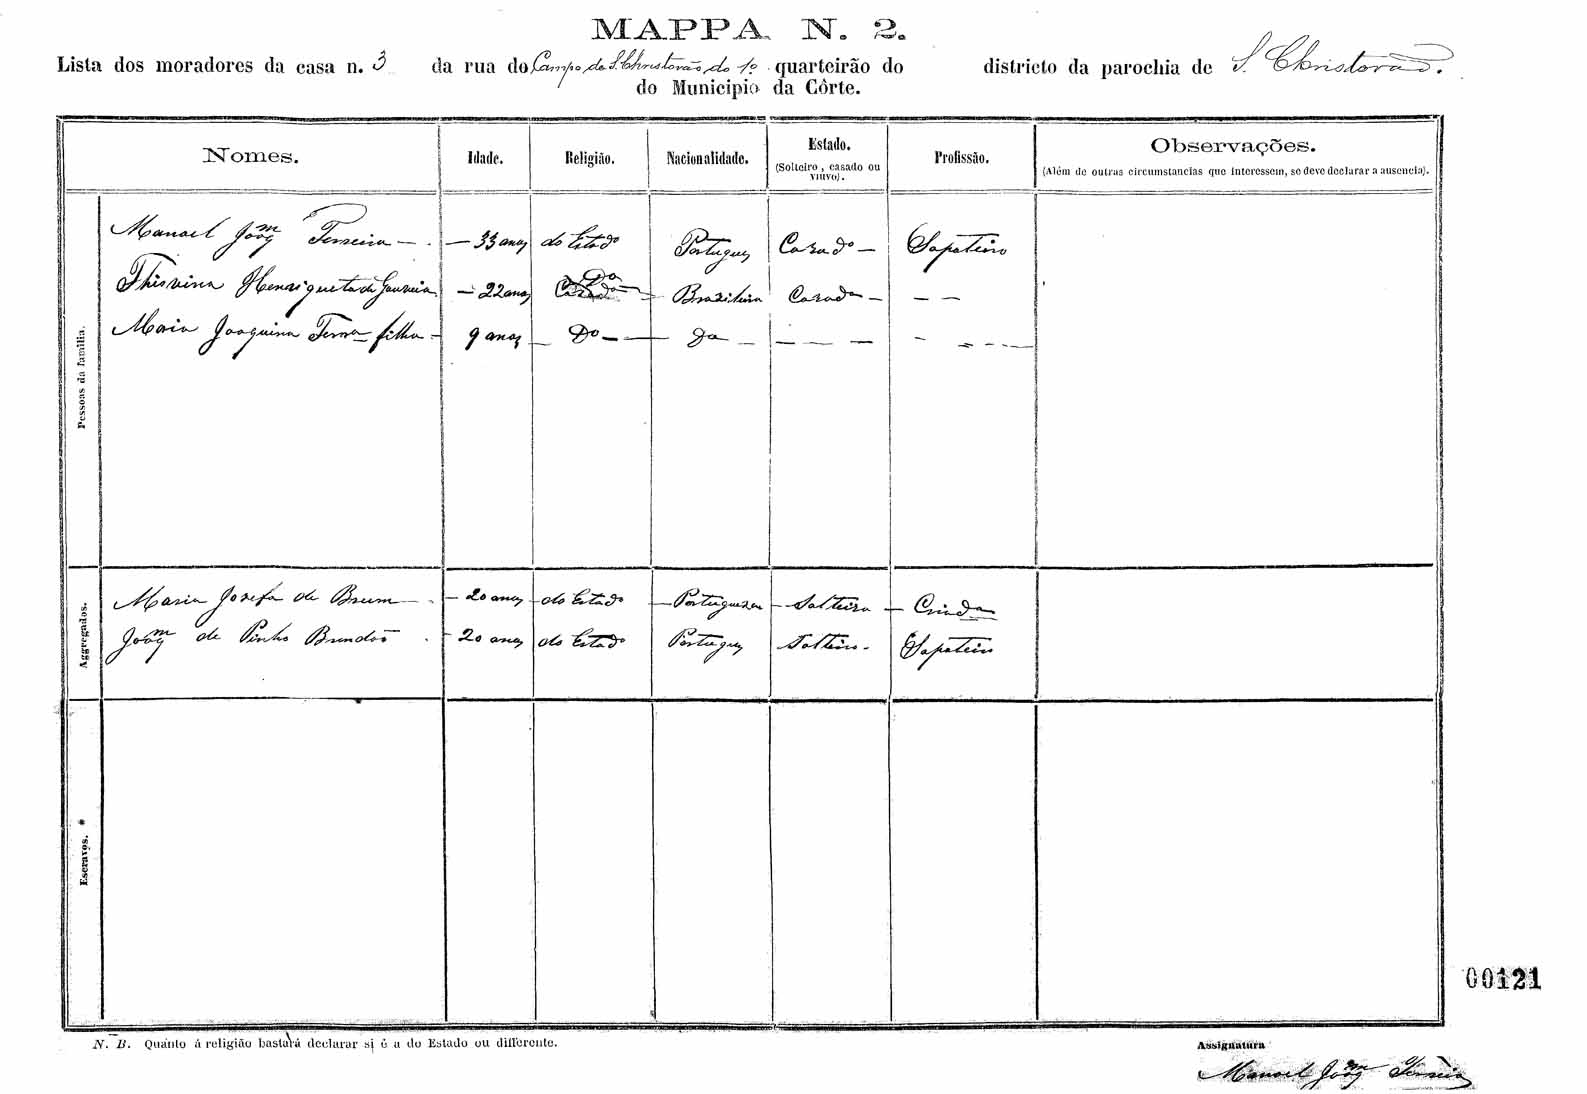 MAPPA N. 2.
Lista dos moradores da casa n. 3 da rua do Campo de S. Christovão do 1º quarteirão do districto da parochia de S. Christovão.
do Municipio da Côrte.
Nomes. Idade. Religião. Nacionalidade. Estado. (Solteiro, casado ou viuvo). Profissão. Observações. (Além de outras circumstancias que interessem, se deve declarar a ausencia).
Pessoas da familia.
Manoel Joaqm Ferreira — 33 annos do Estado Portuguez Cazado — Sapateiro
Henriqueta de Gouveia — 22 annos Da Brazileira Cazada — — —
Maria Joaquina Ferra filha — 9 annos — Do — — Da — — — — - — - - —
Aggregados.
Maria Josefa de Brum — - 20 annos - do Estado — Portugueza — Solteira — Criada
Joaqm de Pinho Brandão - 20 annos do Estado Portuguez Solteiro - Sapateiro
Escravos. *
00121
N. B. Quanto á religião bastará declarar si é a do Estado ou differente.
Assignatura
Manoel Joaqm Ferreira